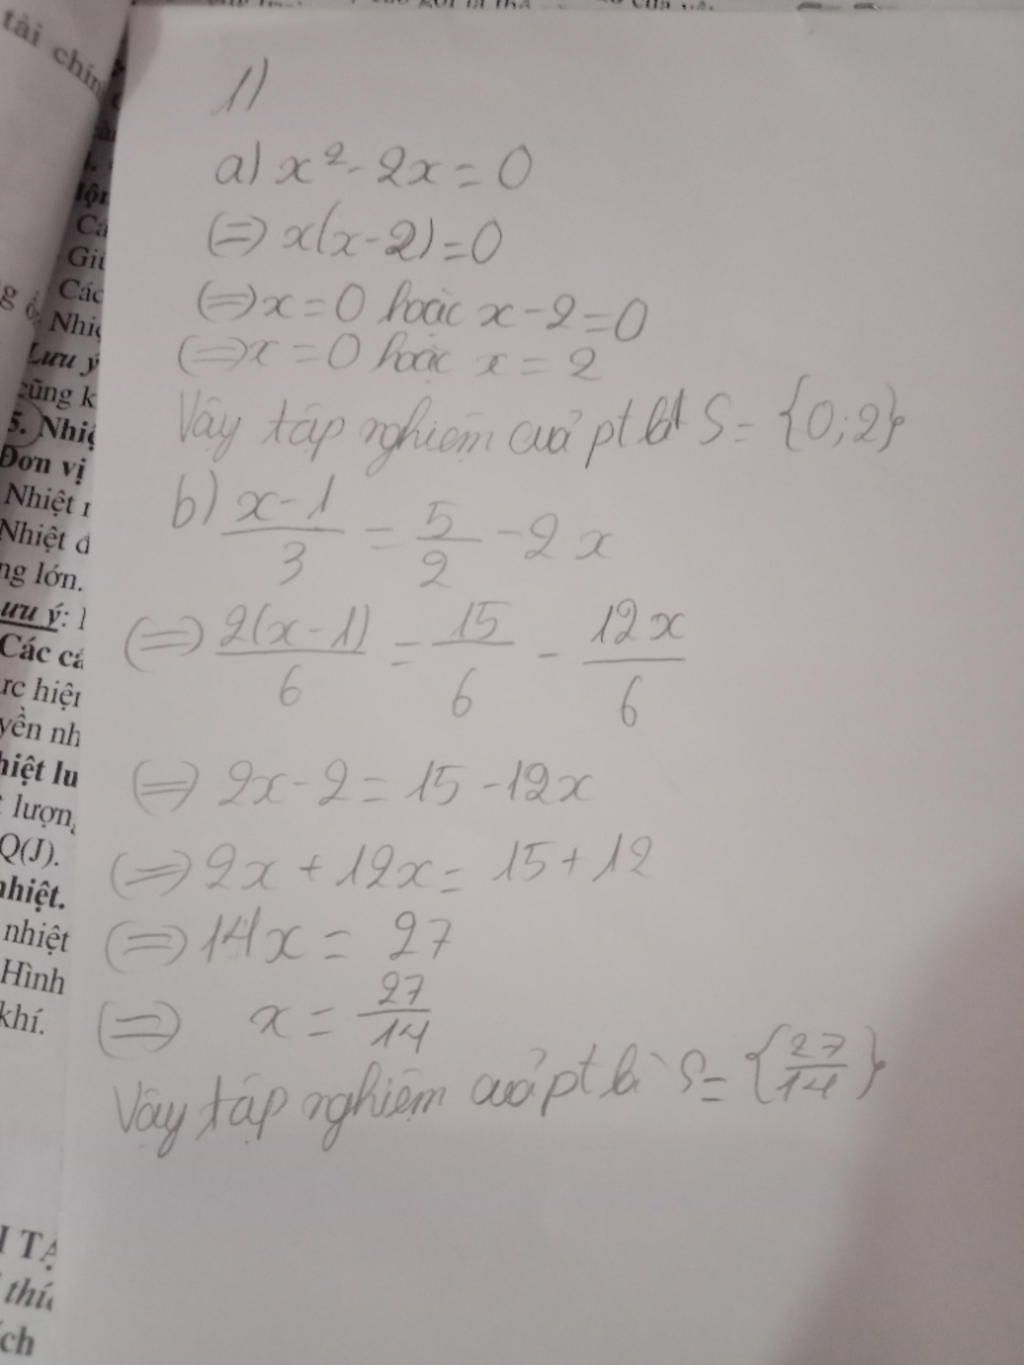 tài chín
1)
a) x² - 2x = 0
(=) x(x-2) = 0
(=) x = 0 hoặc x - 2 = 0
(=) x = 0 hoặc x = 2
Vậy tập nghiệm của pt là S = {0; 2}
b) \frac{x-1}{3} = \frac{5}{2} - 2x
(=) \frac{2(x-1)}{6} = \frac{15}{6} - \frac{12x}{6}
(=) 2x - 2 = 15 - 12x
(=) 2x + 12x = 15 + 12
(=) 14x = 27
(=) x = \frac{27}{14}
Vậy tập nghiệm của pt là S = {\frac{27}{14}}
Các
Lưu ý
cũng k
5. Nhiệ
Đơn vị
Nhiệt
Nhiệt đ
ng lớn.
ưu ý:
Các cá
yền nh
hiệt lu
lượn
Q(J).
nhiệt.
nhiệt
Hình
khí.
I TẬ
thí
ch